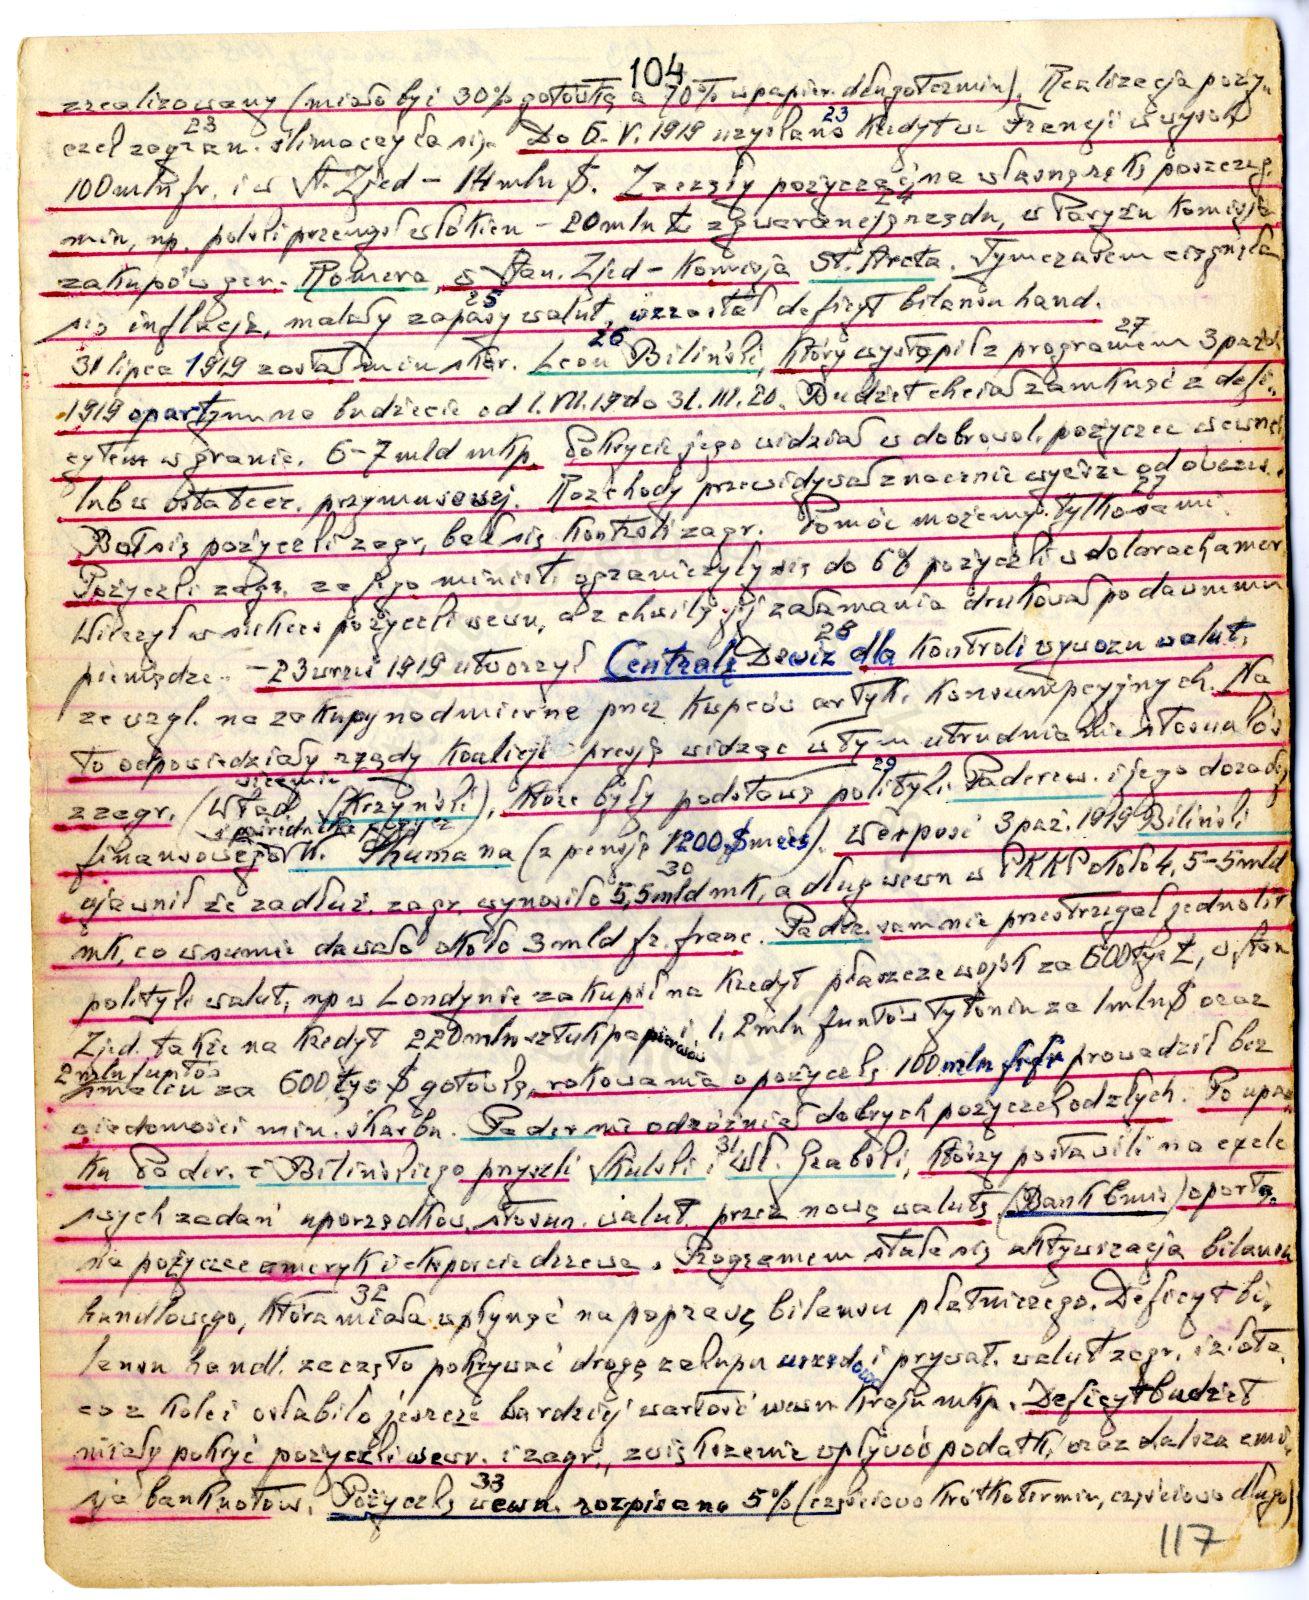 104
zrealizowany (miało być 30% gotówką a 70% w papier. długotermin). Realizacja poży-
czek zagran. ślimaczyła się. Do 6.V.1919 uzyskano kredyt we Francji w wysok
23 23
100 mln fr. i w St. Zjed – 14 mln $. Zaczęły pożyczać na własną rękę poszczeg.
min, np. polski przemysł włókien – 20 mln £ zgwaran. rządu, w Paryżu Komisja
24
zakupów gen. Romera, w Stan. Zjed – Komisja St. Arcta. Tymczasem ciągnęła
się inflacja, malały zapasy walut, wzrastał deficyt bilansu hand.
25
31 lipca 1919 został min skar. Leon Biliński, który wystąpił z programem 3 paźd
26 27
1919 opartym na budżecie od 1.VII.19 do 31.III.20. Budżet chciał zamknąć z defi-
cytem w granic. 6–7 mld mkp. Pokrycie jego widział w dobrowol. pożyczce wewnęt
lub w ostatecz. przymusowej. Rozchody przewidywał znacznie wyższe od
Bał się pożyczki zagr, bał się kontroli zagr. Pomóc możemy tylko sami.
27
Pożyczki zagr. za jego minist. ograniczyły się do 6% pożyczki w dolarach amer
Wierzył w sukces pożyczki wewn, a z chwilą jej załamania drukował po dawnemu
pieniądze. – 23 wrześ 1919 utworzył Centralę Dewiz dla kontroli wywozu walut,
28
ze wzgl. na zakupy nadmierne przez kupców artyk. konsumpcyjnych. Na
to odpowiedziały rządy koalicji presją widząc w tym utrudnianie stosunków
z zagr. (Wład Skrzyński), które były podstawą polityki Paderew. i jego doradcy
29
finansowego Shumana (z pensją 1200 $ mies). Werpość 3 paź. 1919 Biliński
ujawnił że zadłuż. zagr. wynosiło 5,5 mld mk, a dług wewn w PKKP około 4,5–5 mld
30
mk, co w sumie dawało około 3 mld fr. franc. Pader. sam nie przestrzegał jednolit
polityki walut, np w Londynie zakupił na kredyt płaszcze wojsk za 600 tyś £, w Stan
Zjed. także na kredyt 220 mln sztuk papierosów i 1,2 mln funtów tytoniu za 1 mln $ oraz
2 mln funtów
smalcu za 600 tyś $ gotówką, rokowania o pożyczkę 100 mln frfr prowadził bez
wiadomości min. skarbu. Pader nie odróżniał dobrych pożyczek od złych. Po upad
ku Pader. i Bilińskiego przyszli Skulski i Wł. Grabski, którzy postawili na czele
31
swych zadań uporządkow. stosun. walut. przez nową walutę (Bank Emis) opartą
na pożyczce ameryk i eksporcie drzewa. Programem stała się aktywizacja bilansu
handlowego, która miała wpłynąć na poprawę bilansu płatniczego. Deficyt bi-
32
lansu handl. zaczęto pokrywać drogą zakupu urzędow i prywat. walut zagr. i złota,
co z kolei osłabiło jeszcze bardziej wartość wewn kraju mkp. Deficyt budżet
miały pokryć pożyczki wewn. i zagr., zwiększenie wpływów podatk, oraz dalsza emi-
sja banknotów. Pożyczkę wewn. rozpisano 5% (częściowo krótkotermin, częściowo długo)
33
117